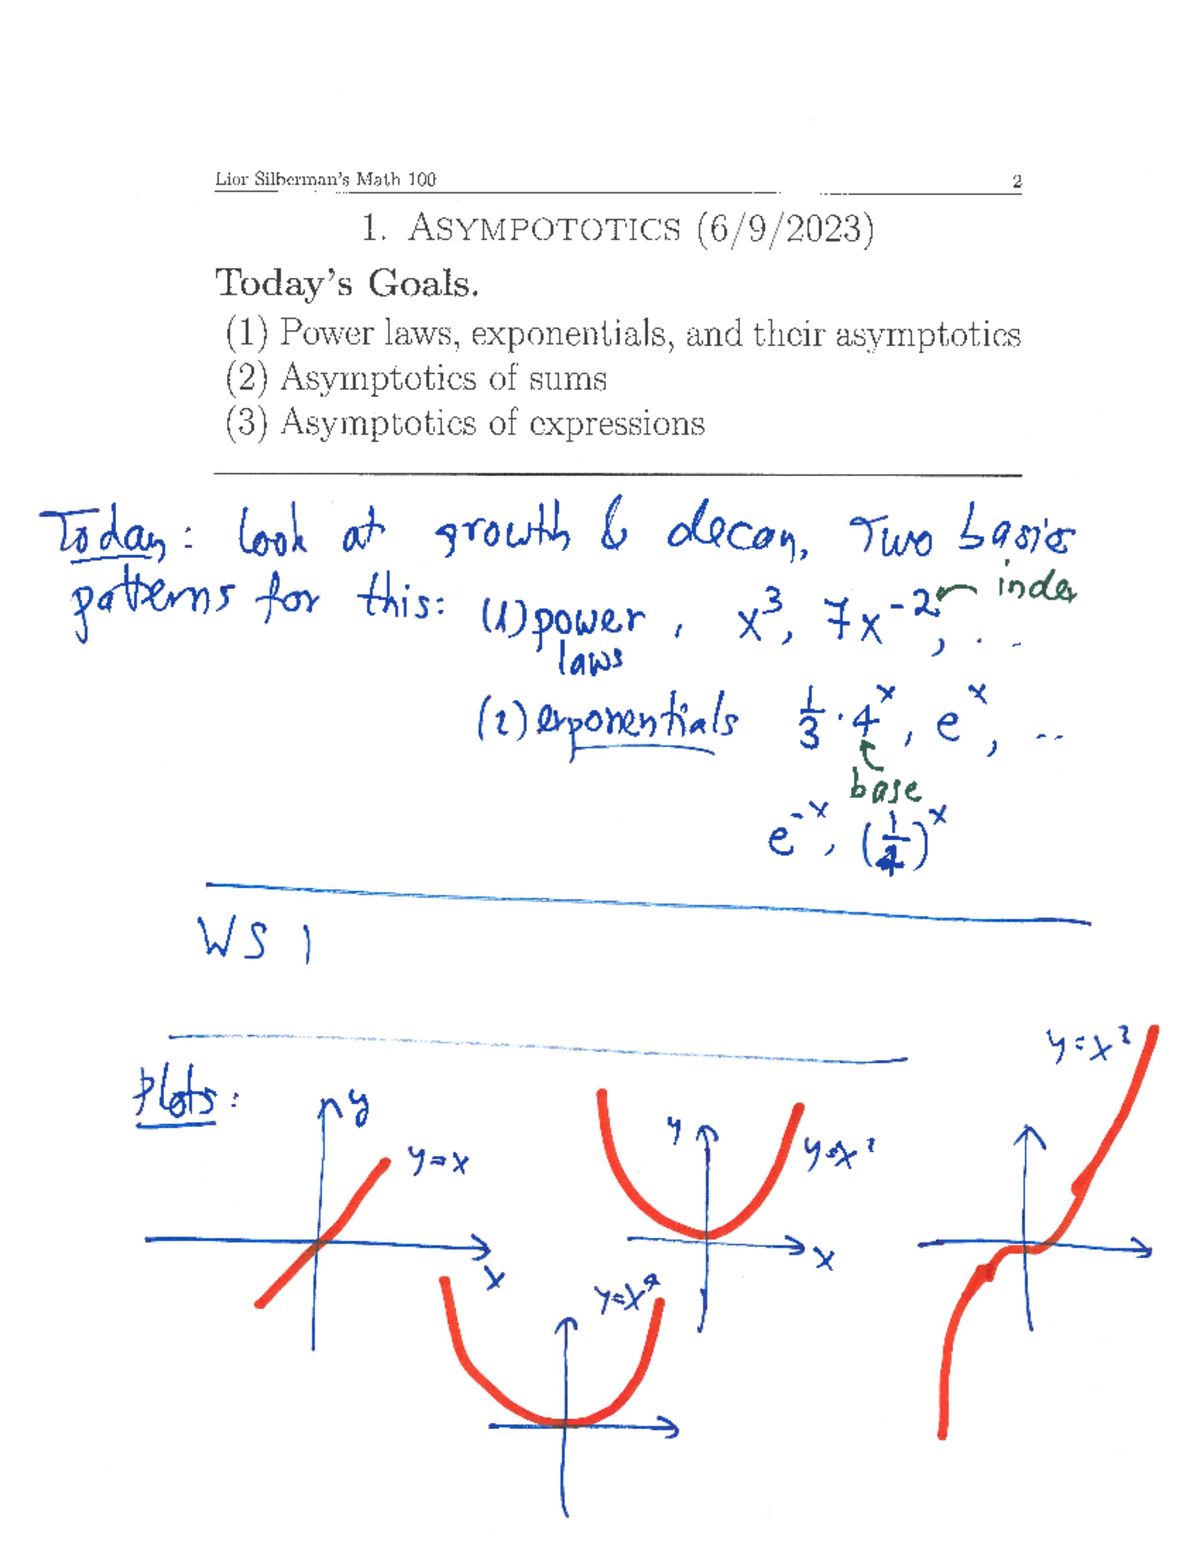 Lior Silberman's Math 100 2
1. ASYMPOTOTICS (6/9/2023)
Today's Goals.
(1) Power laws, exponentials, and their asymptotics
(2) Asymptotics of sums
(3) Asymptotics of expressions
Today: look at growth & decay, Two basic
patterns for this: (1) power laws, x³, 7x⁻², ... index
(2) exponentials 1/3 · 4ˣ, eˣ, ..
base
e⁻ˣ, (1/4)ˣ
WS 1
Plots:
y
y=x
x
y
y=x²
x
y=x³
y=x⁴